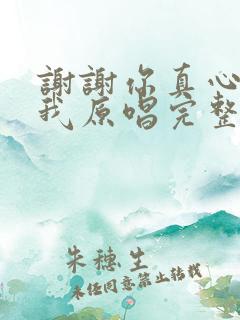 謝謝你真心
我原唱完整
朱穗生
未經同意禁止轉載